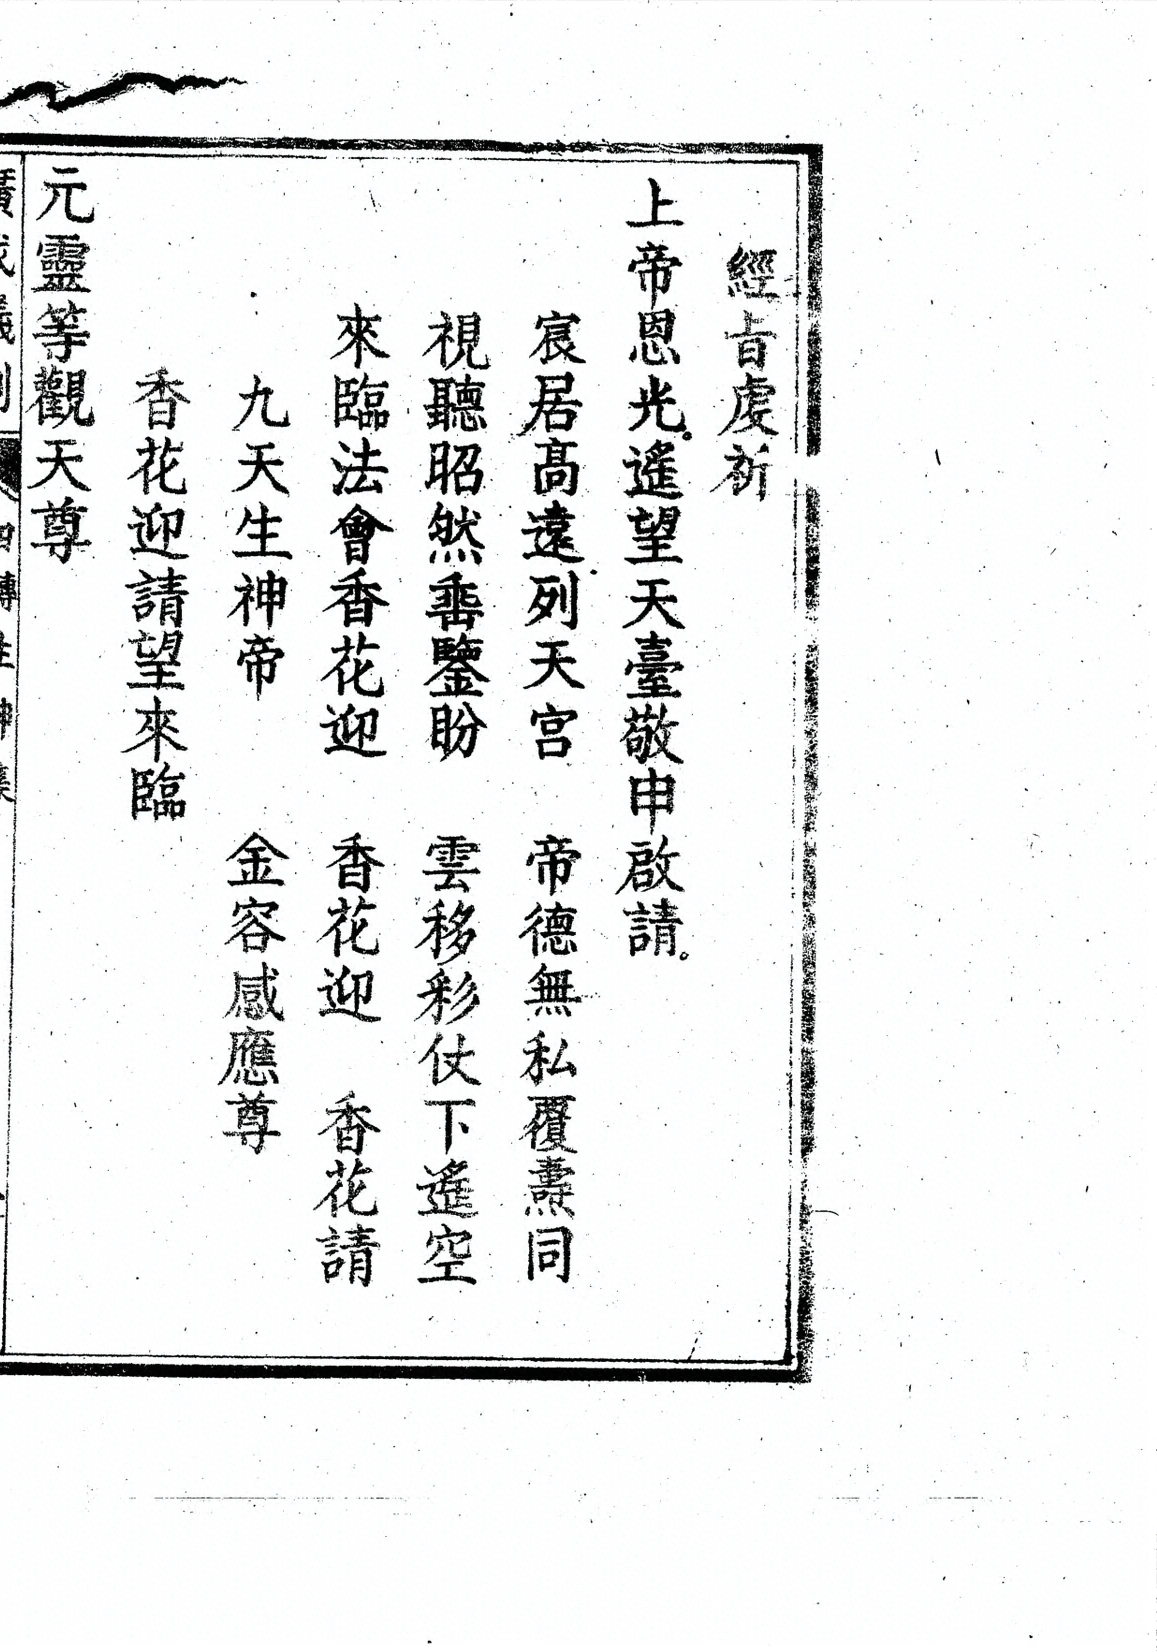 經旨虔祈
上帝恩光遙望天臺敬申啟請
宸居高遠列天宮　帝德無私覆燾同
視聽昭然垂鑒盼　雲移彩仗下遙空
來臨法會香花迎　香花迎　香花請
九天生神帝　金容感應尊
香花迎請望來臨
元靈等觀天尊